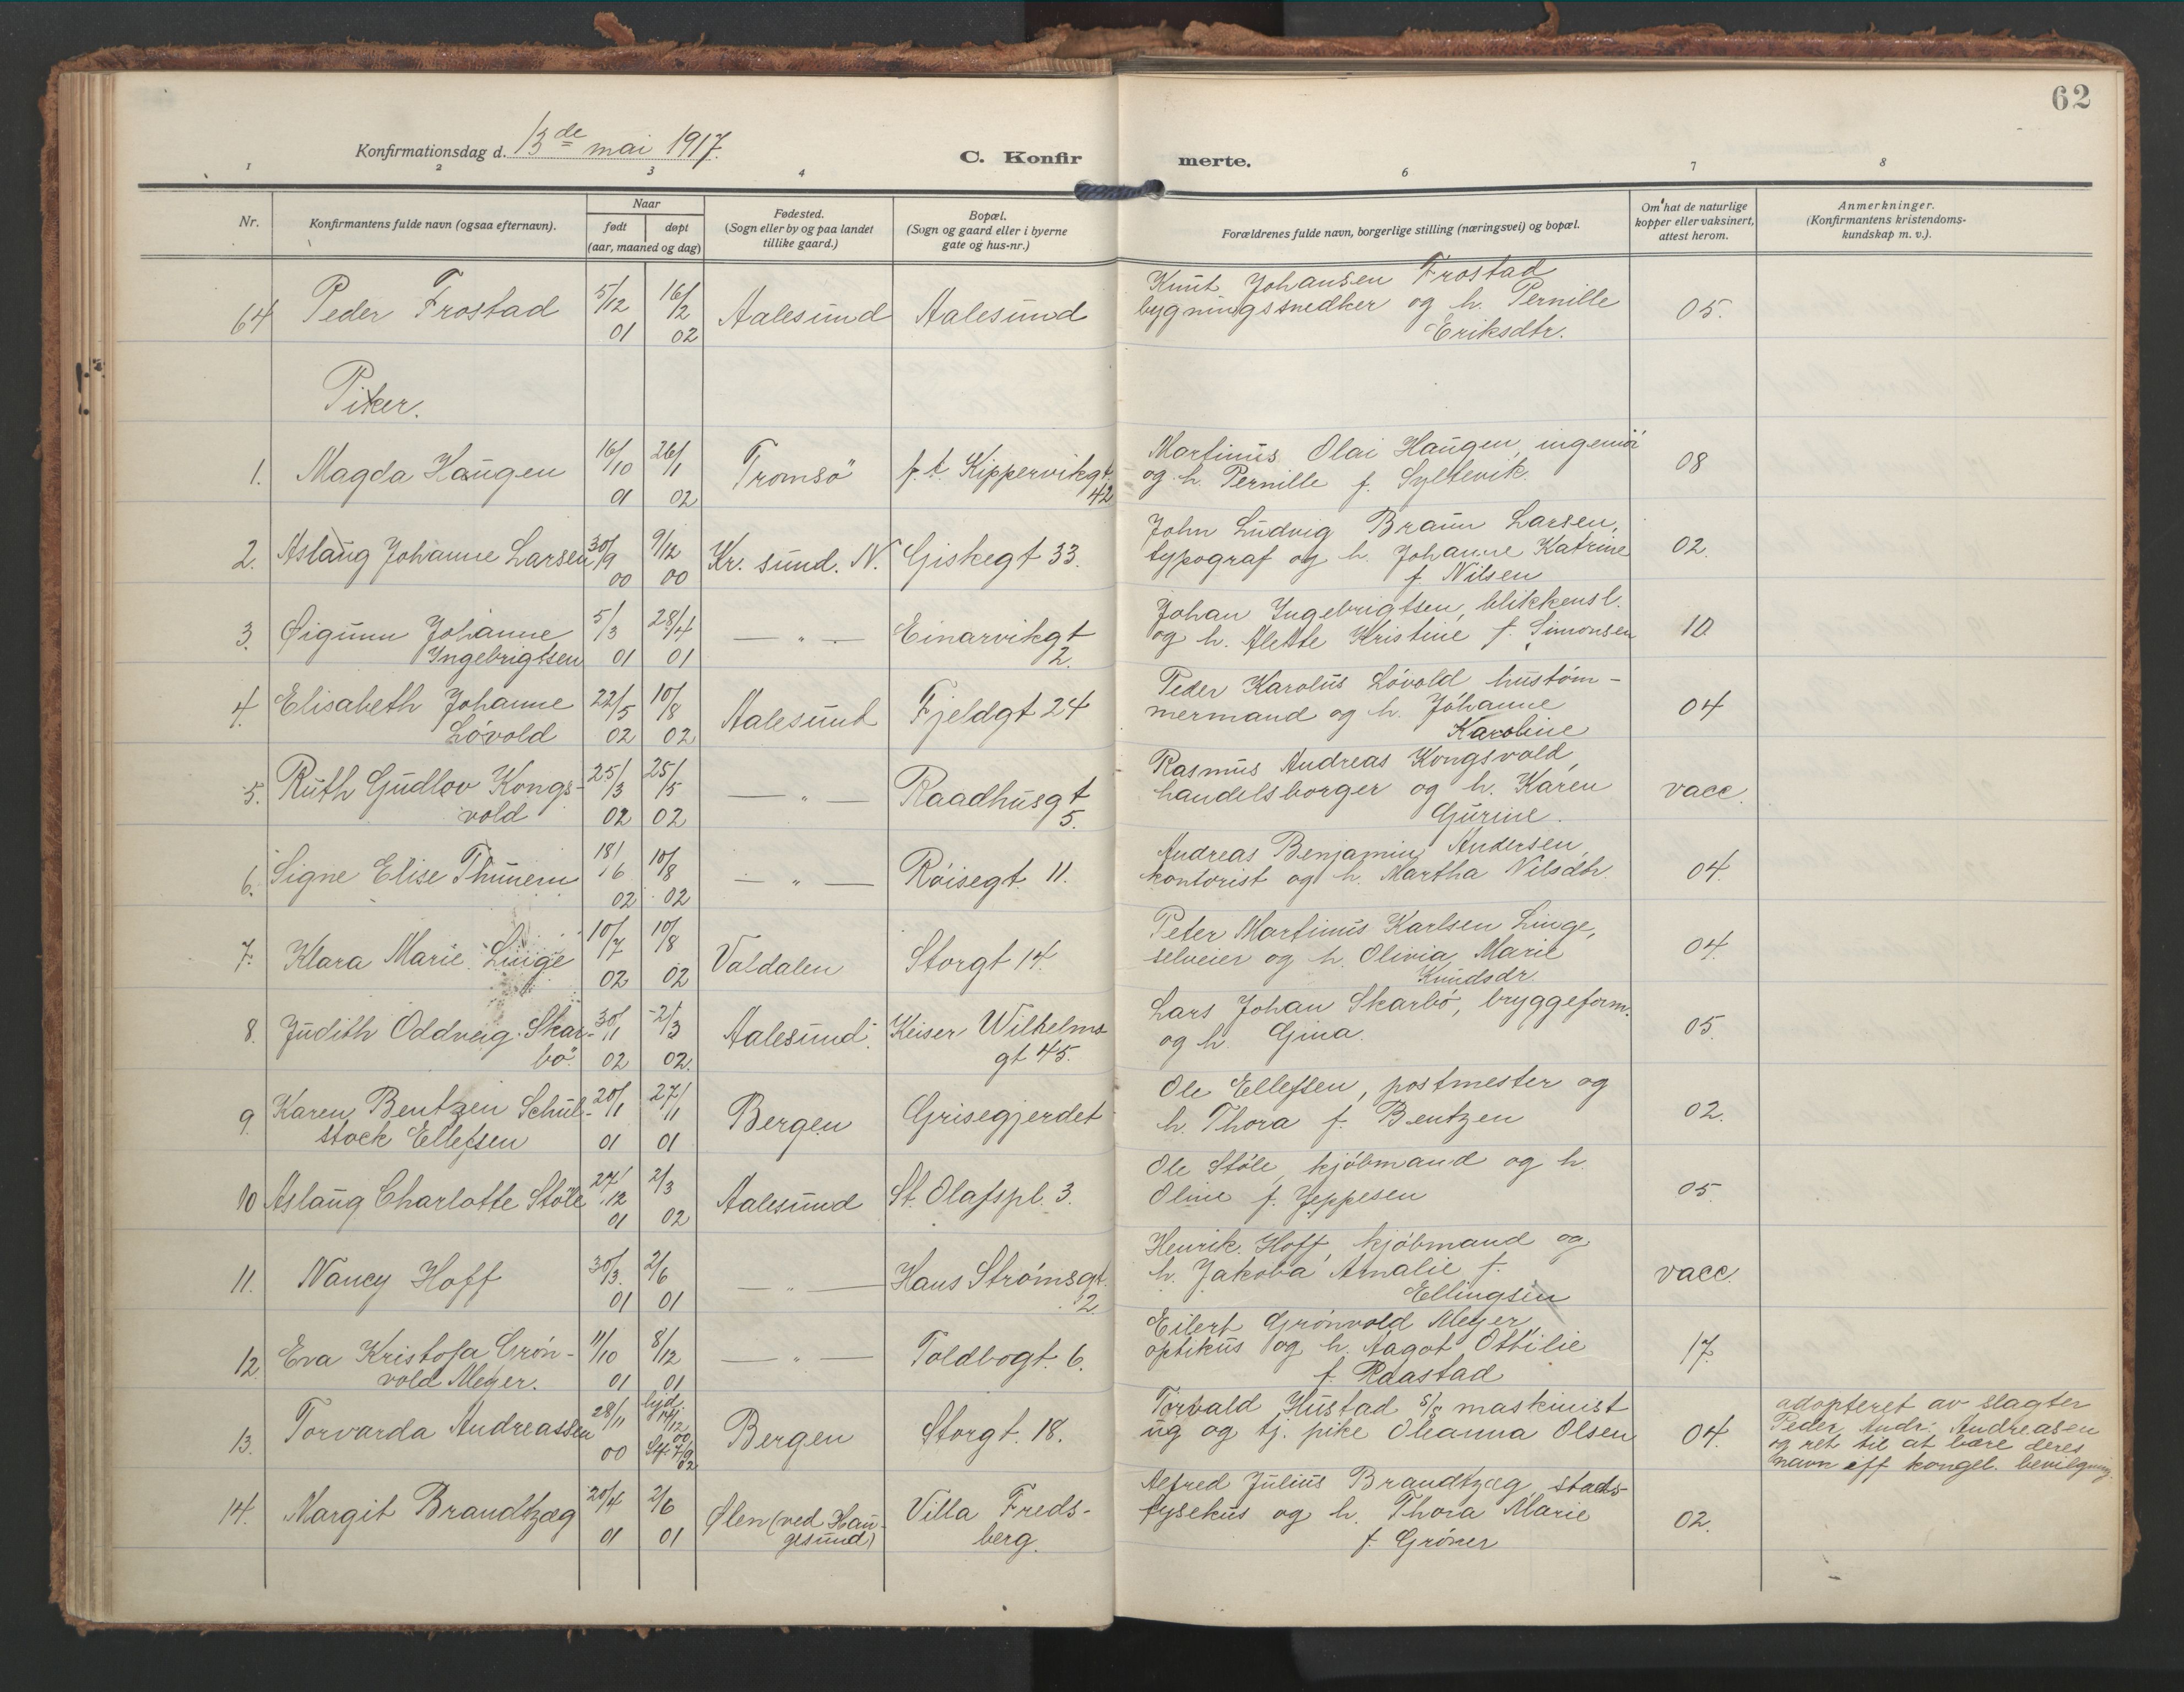 62
Konfirmationsdag d. 13de mai 1917.
C. Konfirmerte.
1 2 3 4 6 7 8
Nr.
Konfirmantens fulde navn (ogsaa efternavn).
Naar
født døpt
(aar, maaned og dag)
Fødested.
(Sogn eller by og paa landet
tillike gaard.)
Bopæl.
(Sogn og gaard eller i byerne
gate og hus-nr.)
Forældrenes fulde navn, borgerlige stilling (næringsvei) og bopæl.
Om hat de naturlige
kopper eller vaksinert,
attest herom.
Anmerkninger.
(Konfirmantens kristendoms-
kundskap m. v.).
64 Peder Frostad 5/12 01 16/2 02 Aalesund Aalesund
Knut Johansen Frostad
bygningssnedker og h. Pernille
Eriksdtr.
05.
Piker.
1. Magda Haugen 16/10 01 26/1 02 Tromsö p.t. Kippervikgt.
42
Martinus Olai Haugen, ingeniør
og h. Pernille f. Syltevik.
08
2. Aslaug Johanne Larsen 30/9 00 9/12 00 Kr. sund. N. Giskegt 33.
John Ludvig Braun Larsen,
typograf og h. Johanne Katrine
f. Nilsen
02.
3. Øigunn Johanne
Ingebrigtsen
5/3 01 28/4 01 — „ — Einarvikgt
2.
Johan Ingebrigtsen, blikkensl.
og h. Alette Kristine f. Simonsen
10.
4. Elisabeth Johanne
Lövold
22/5 02 10/8 02 Aalesund Fjeldgt 24
Peder Karolus Lövold hustöm-
mermand og h. Johanne
Karoline
04
5. Ruth Gudlov Kongs-
vold
25/3 02 25/5 02 — „ — Raadhusgt
5.
Rasmus Andreas Kongsvold,
handelsborger og h. Karen
Gurine.
vacc.
6. Signe Elise Thunem 18/6 02 10/8 02 — „ — Röisegt. 11.
Andreas Benjamin Andersen,
kontorist og h. Martha Nilsdtr.
04.
7. Klara Marie Linge 10/7 02 10/8 02 Valdalen Storgt 14.
Peter Martinus Karlsen Linge,
selveier og h. Olivia Marie
Knudsdr.
04.
8. Judith Oddveig Skar-
bö
30/1 02 2/3 02. Aalesund. Keiser Wilhelms
gt 45.
Lars Johan Skarbö, bryggeform.
og h. Gina.
05.
9. Karen Bentzen Schul-
stock Ellefsen
20/1 01 27/1 01 Bergen Grisegjerdet
Ole Ellefsen, postmester og
h. Thora f. Bentzen
02.
10 Aslaug Charlotte Stöle 27/12 01 2/3 02 Aalesund St. Olafspl. 3.
Ole Stöle, kjöbmand og h.
Oline f. Jeppesen
05.
11. Nancy Hoff 30/3. 01 2/6 01 — „ — Hans Strömsgt.
2.
Henrik Hoff, kjöbmand og
h. Jakoba Amalie f.
Ellingsen
vacc.
12. Eva Kristofa Grön-
vold Meyer.
11/10 01 8/12 01 — „ — Toldbogt. 6.
Eilert Grönvold Meyer,
optikus og h. Aagot Ottilie
f. Raastad
17.
13. Torvarda Andreassen 28/11 00 hjd. 14/12 00 St. 7/9 02 Bergen Storgt. 18.
Torvald Hustad s/s maskinist
ug og tj. pike Oleanna Olsen
04.
adopteret av slagter
Peder Andr. Andreasen
og ret til at bære deres
navn eff kongel. bevilgning.
14. Margit Brandtzæg 20/4 01 2/6 01 Ølen (ved Hau-
gesund)
Villa Freds-
berg.
Alfred Julius Brandtzæg, stads-
fysekus og h. Thora Marie
f. Gröner
02.